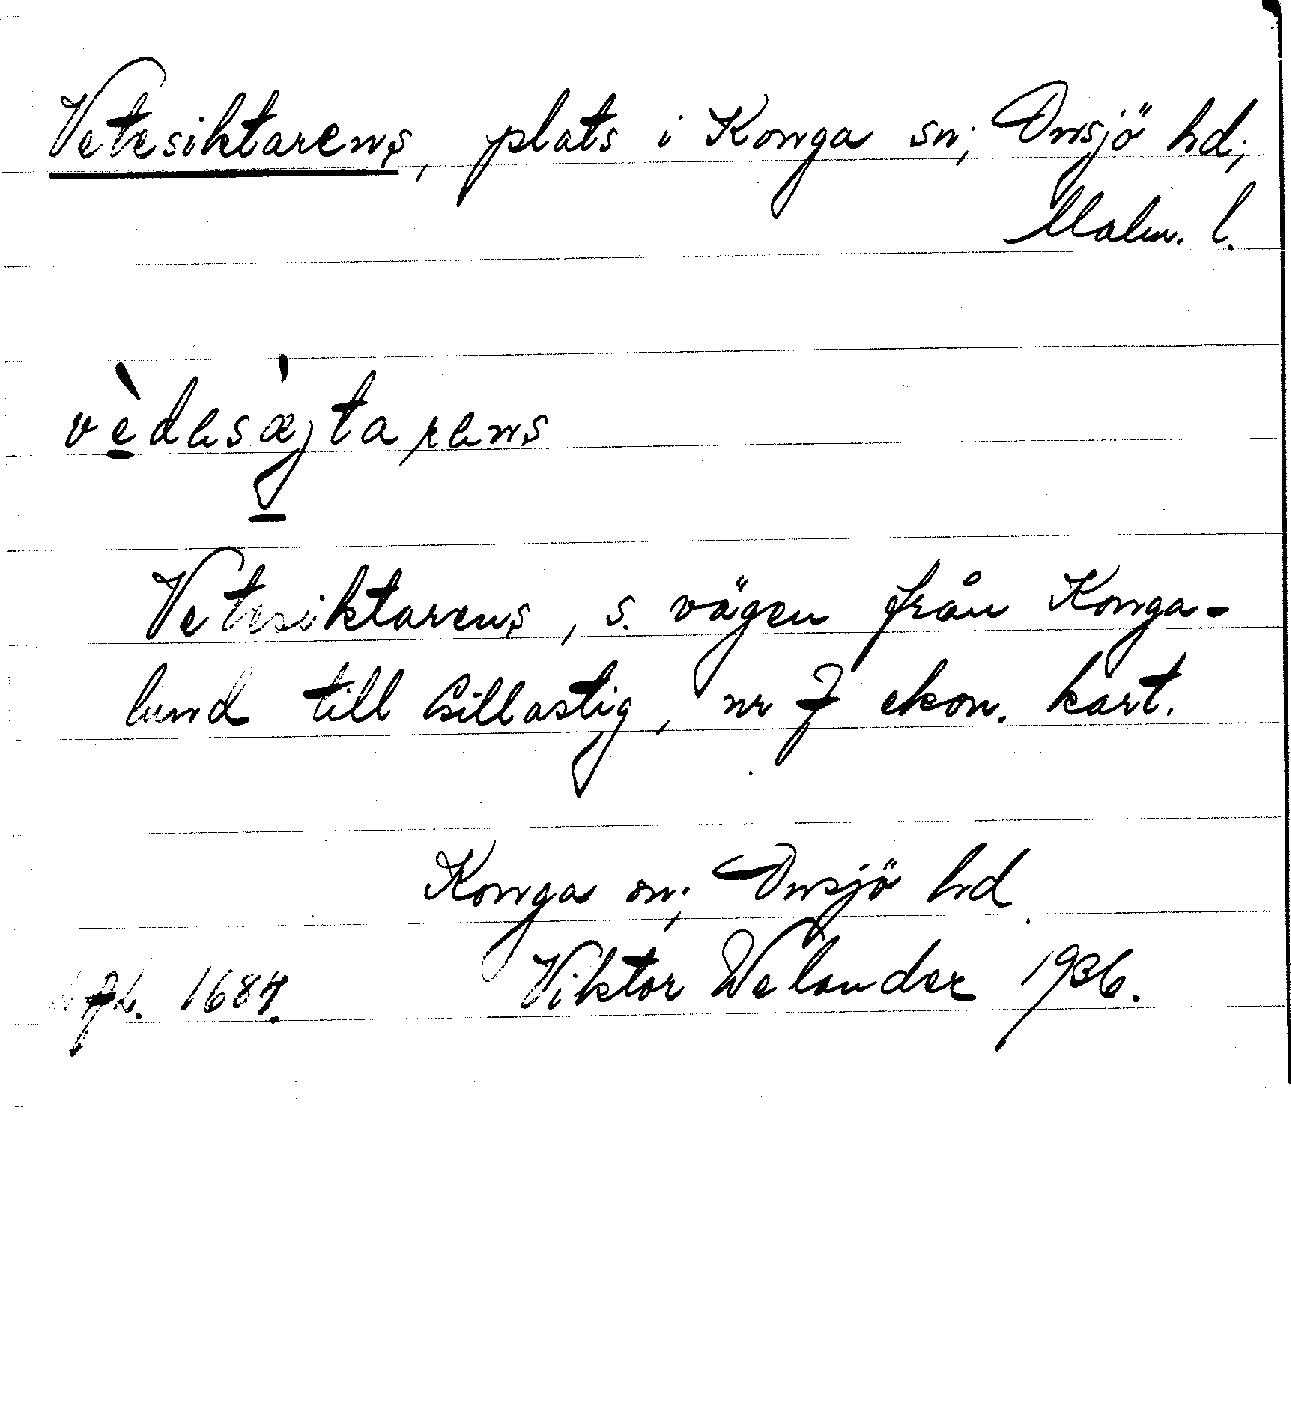 Vetesiktarens, plats i Konga sn; Onsjö hd;
Malm. l.
vèdasàjtarens
Vetesiktarens, s. vägen från Konga-
lund till Sillastig, nr 7 ekon. kart.
Konga sn; Onsjö hd
1684. Viktor Welander 1936.